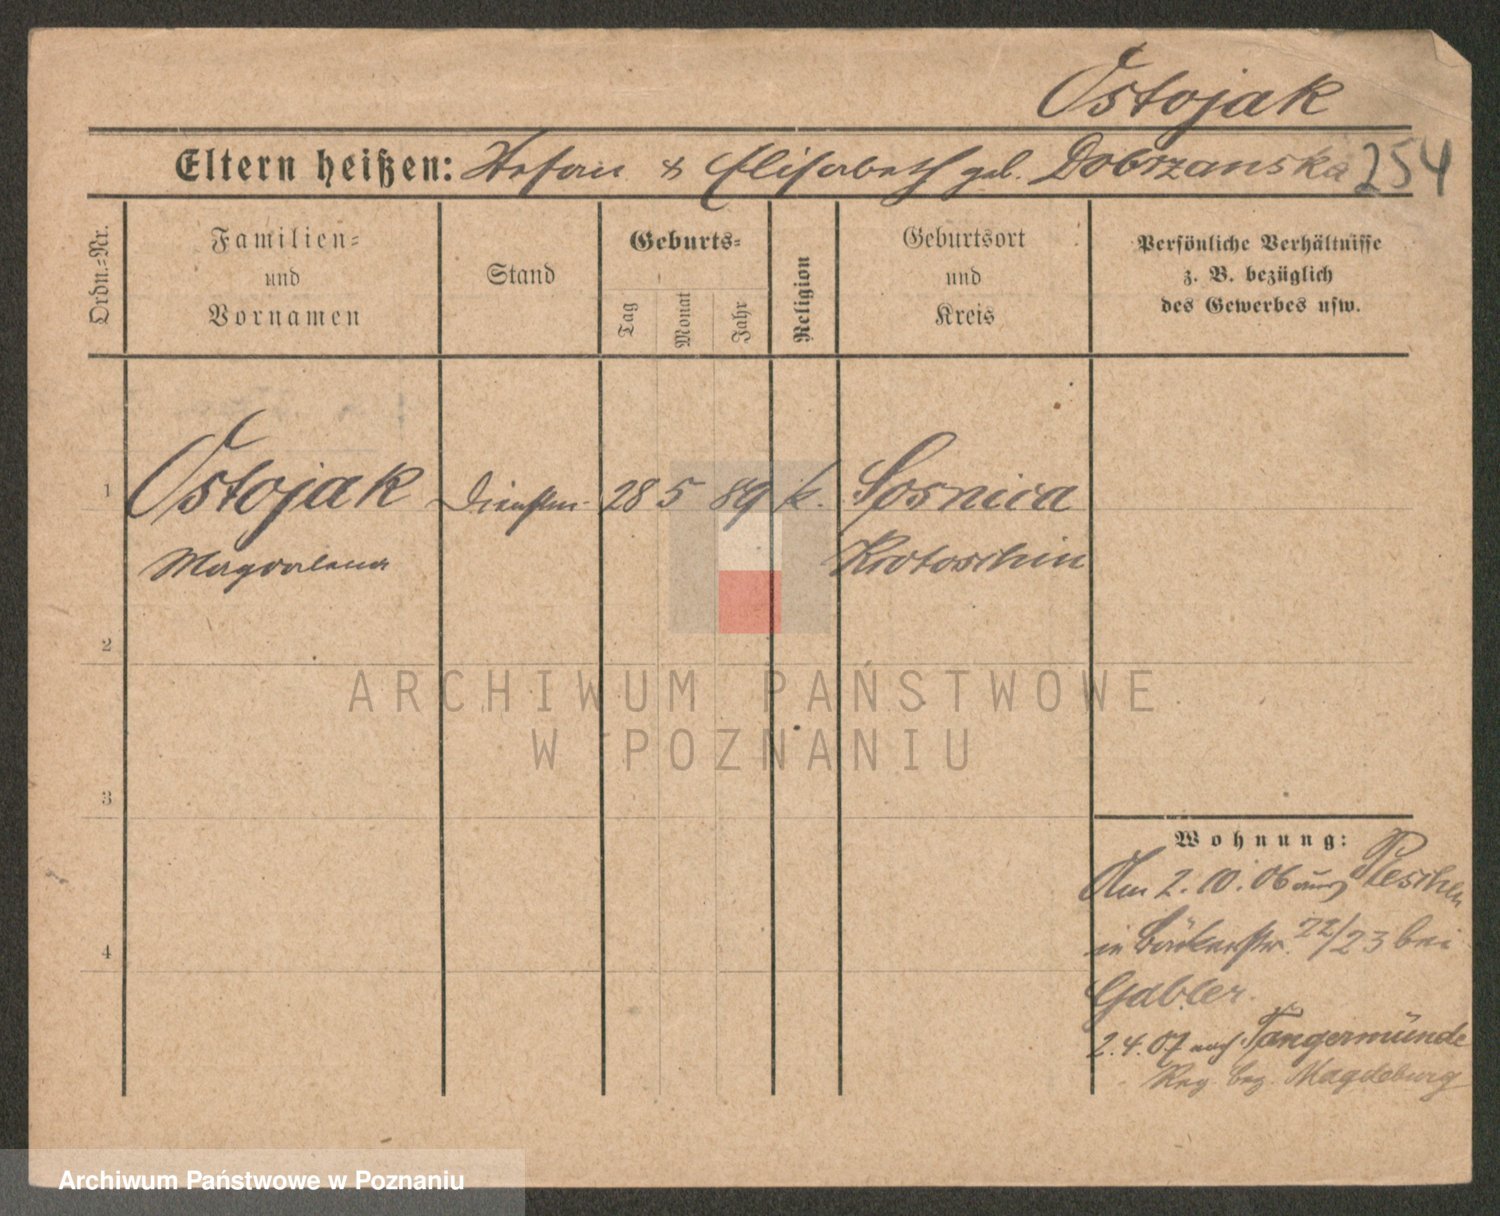 Ostojak
Eltern heißen: Stefan & Elisabeth geb. Dobrzanska 254
Ordn.-Nr.
Familien-
und
Vornamen
Stand
Geburts-
Tag
Monat
Jahr
Religion
Geburtsort
und
Kreis
Persönliche Verhältnisse
z. B. bezüglich
des Gewerbes usw.
1 Ostojak Dienstm. 28 5 89 k. Sosnica
Magdalena Krotoschin
2
ARCHIWUM PAŃSTWOWE
W POZNANIU
3
Wohnung:
Am 2.10.06 aus Pleschen
4
in Bäckerstr. 22/23 bei
Gabler.
2.4.07 nach Tangermünde
Reg. bez. Magdeburg
Archiwum Państwowe w Poznaniu